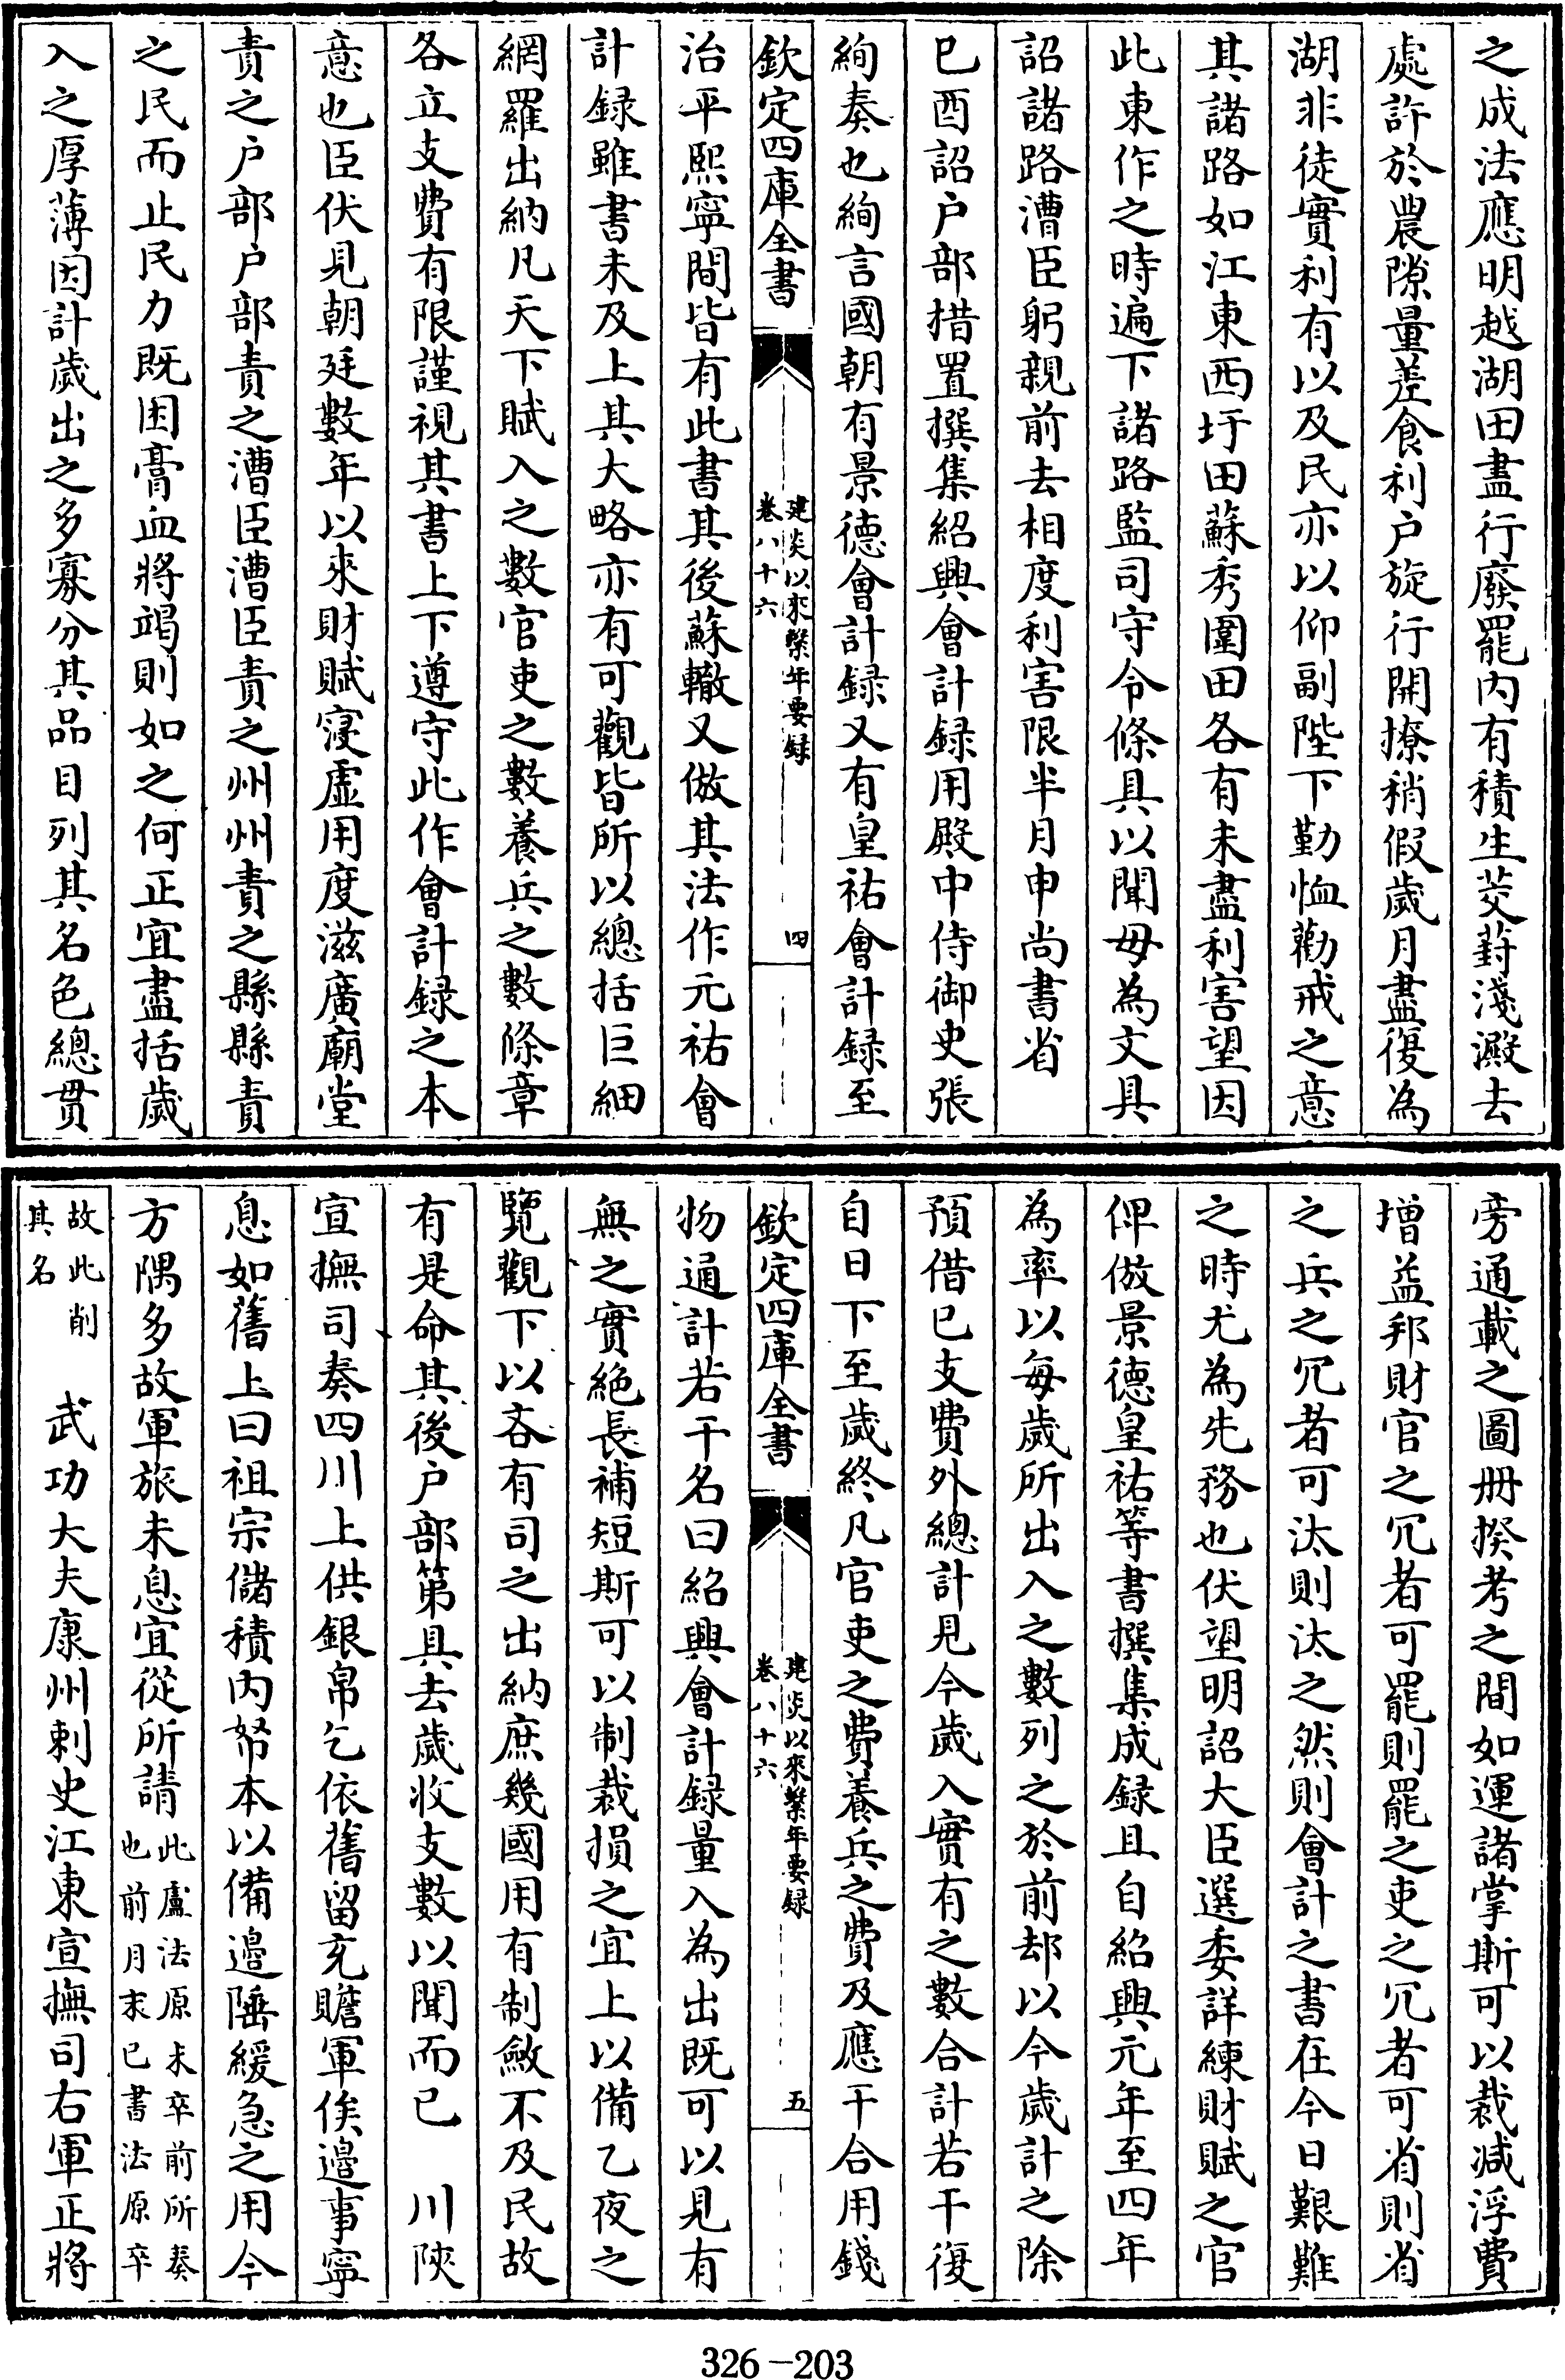 之成法應明越湖田盡行廢罷内有積生茭葑淺澱去
處許於農隙量差食利户旋行開撩稍假歲月盡復為
湖非徒實利有以及民亦以仰副陛下勤恤勸戒之意
其諸路如江東西圩田蘇秀圍田各有未盡利害望因
此東作之時遍下諸路監司守令條具以聞毋為文具
詔諸路漕臣躬親前去相度利害限半月申尚書省
已酉詔户部措置撰集紹興會計録用殿中侍御史張
絢奏也絢言國朝有景德會計録又有皇祐會計録至
欽定四庫全書
建炎以來繫年要録
卷八十六
四
治平熙寧間皆有此書其後蘇轍又倣其法作元祐會
計録雖書未及上其大略亦有可觀皆所以總括巨細
網羅出納凡天下賦入之數官吏之數養兵之數條章
各立支費有限謹視其書上下遵守此作會計録之本
意也臣伏見朝廷數年以來財賦寖虚用度滋廣廟堂
責之户部户部責之漕臣漕臣責之州州責之縣縣責
之民而止民力既困膏血將竭則如之何正宜盡括歲
入之厚薄因計歲出之多寡分其品目列其名色總貫
旁通載之圖册揆考之間如運諸掌斯可以裁减浮費
增益邦財官之冗者可罷則罷之吏之冗者可省則省
之兵之冗者可汰則汰之然則會計之書在今日艱難
之時尤為先務也伏望明詔大臣選委詳練財賦之官
俾倣景德皇祐等書撰集成録且自紹興元年至四年
為率以每歲所出入之數列之於前却以今歲計之除
預借已支費外總計見今歲入實有之數合計若干復
自日下至歲終凡官吏之費養兵之費及應干合用錢
欽定四庫全書
建炎以來繫年要録
卷八十六
五
物通計若干名曰紹興會計録量入為出既可以見有
無之實絶長補短斯可以制裁損之宜上以備乙夜之
覽觀下以吝有司之出納庶幾國用有制斂不及民故
有是命其後户部第具去歲收支數以聞而已　川陜
宣撫司奏四川上供銀帛乞依舊留充贍軍俟邉事寧
息如舊上曰祖宗儲積内帑本以備邉陲緩急之用今
方隅多故軍旅未息宜從所請此盧法原未卒前所奏
也前月末已書法原卒
故此削
其名　武功大夫康州刺史江東宣撫司右軍正將
326-203